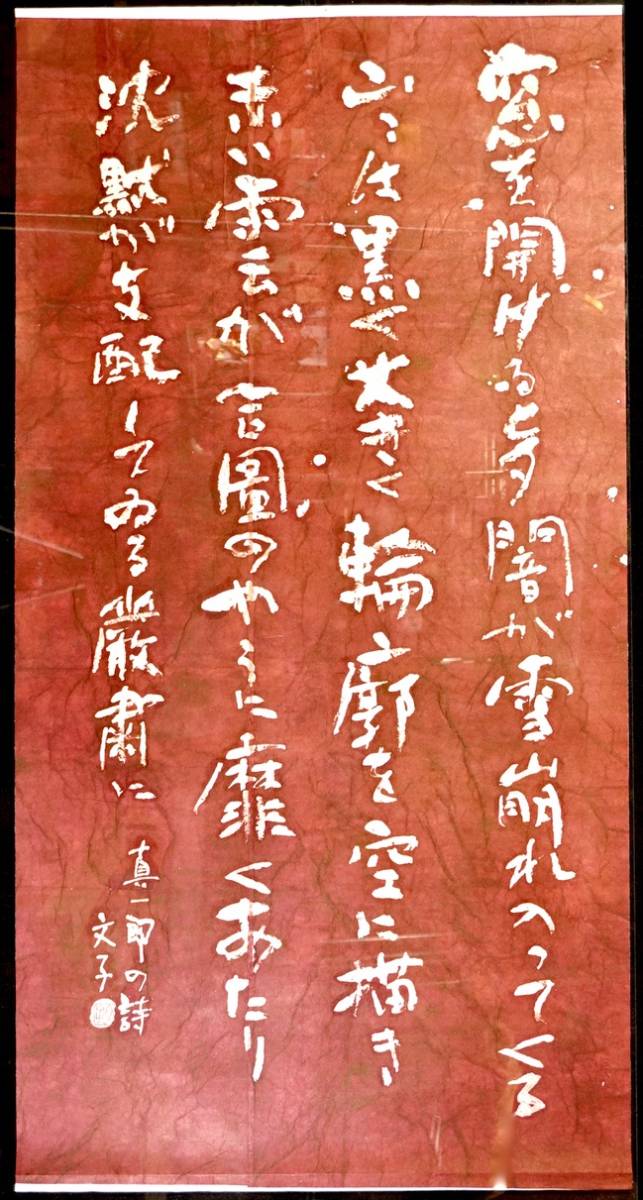 窓を開けると闇が雪崩れ入ってくる
山々は黒く大きく輪廓を空に描き
赤い雲が合圖のやうに靡くあたり
沈默が支配してゐる厳肅に
真一郎の詩
文子